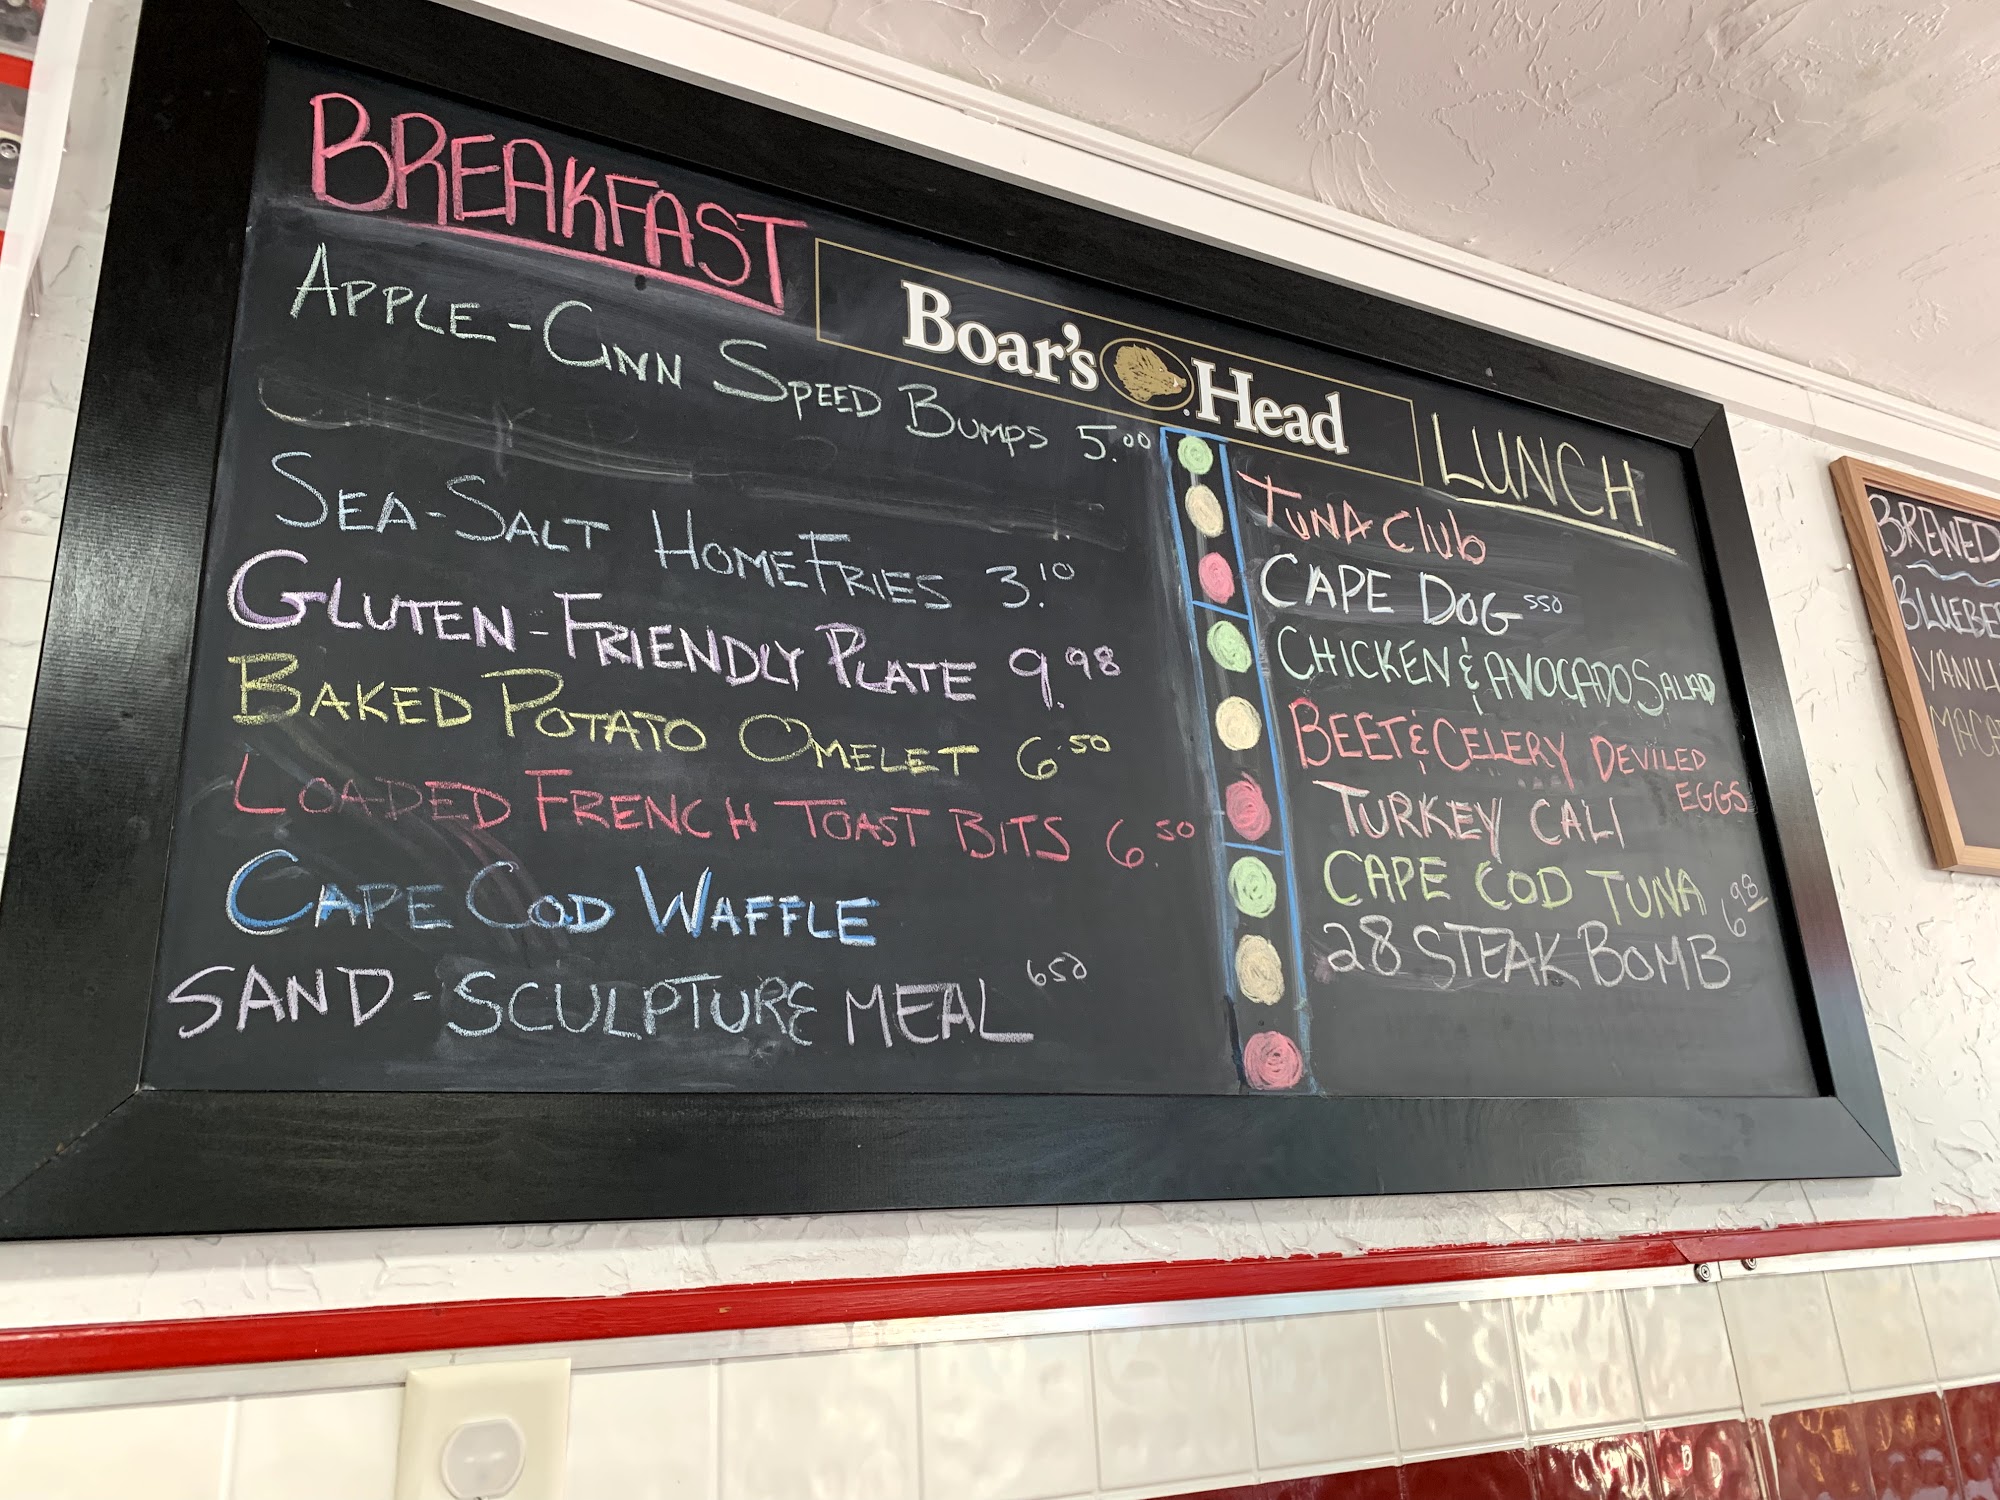 BREAKFAST
APPLE-CINN SPEED BUMPS 5.00
SEA-SALT HOMEFRIES 3.10
GLUTEN-FRIENDLY PLATE 9.98
BAKED POTATO OMELET 6.50
LOADED FRENCH TOAST BITS 6.50
CAPE COD WAFFLE
SAND-SCULPTURE MEAL 650
Boar's Head
LUNCH
TUNA Club
CAPE DOG 550
CHICKEN & AVOCADO SALAD
BEET & CELERY DEVILED
EGGS
TURKEY CALI
CAPE COD TUNA
28 STEAK BOMB 6.98
BREWED